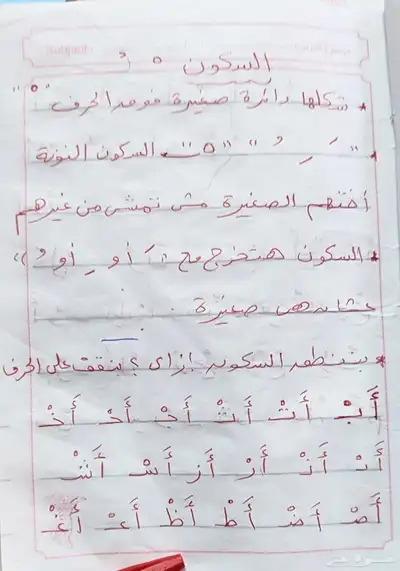 السكون ْ
* شكلها دائرة صغيرة فوق الحرف " ْ "
* " َ ِ ُ " " ْ " السكون النونة
أختهم الصغيرة مش تمشى من غيرهم
* السكون هتخرج مع " َ أو ِ أو ُ "
عشان هى صغيرة
* بتنطق السكون إزاى ؟ بنقف على الحرف
أَبْ أَتْ أَثْ أَجْ أَحْ أَخْ
أَدْ أَذْ أَرْ أَزْ أَسْ أَشْ
أَصْ أَضْ أَطْ أَظْ أَعْ أَغْ